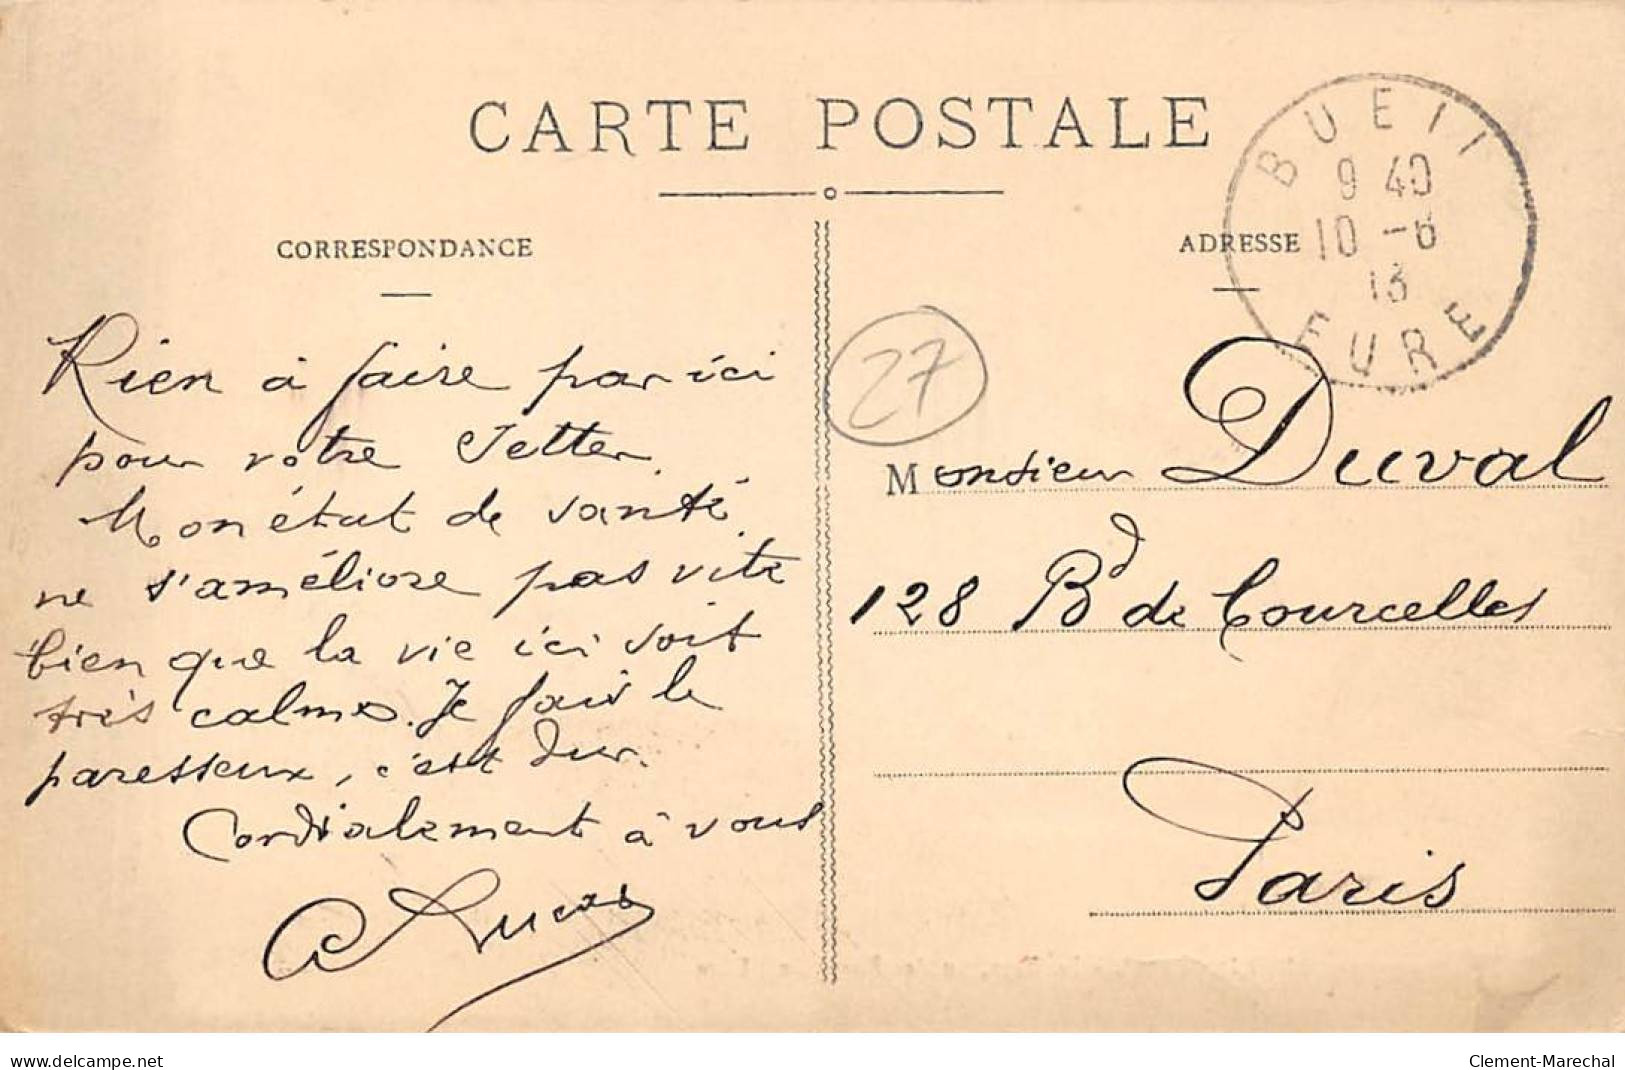 CARTE POSTALE
CORRESPONDANCE
ADRESSE
BUEIL
9 40
10 -6
13
EURE
27
Rien à faire par ici
pour votre Jetter.
Mon état de santé
ne s'améliore pas vite
bien que la vie ici soit
très calme. Je fais le
paresseux, c'est dur.
Cordialement à vous
Lucas
Monsieur Duval
128 Bd de Courcelles
Paris
www.delcampe.net
Clement-Marechal